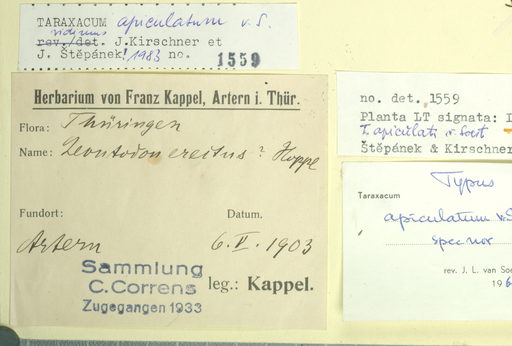 TARAXACUM apiculatum v. S.
vidimus
rev./det. J.Kirschner et
J. Štěpánek! 1983 no. 1559
Herbarium von Franz Kappel, Artern i. Thür.
Flora: Thüringen
Name: Leontodon erectus? Hoppe
Fundort: Datum.
Artern 6. V. 1903
Sammlung
C. Correns
Zugegangen 1933
leg.: Kappel.
no. det. 1559
Planta LT signata:
T. apiculati v. Soest
Štěpánek & Kirschner
Typus
Taraxacum
apiculatum v. S
spec nov
rev. J. L. van Soe
196